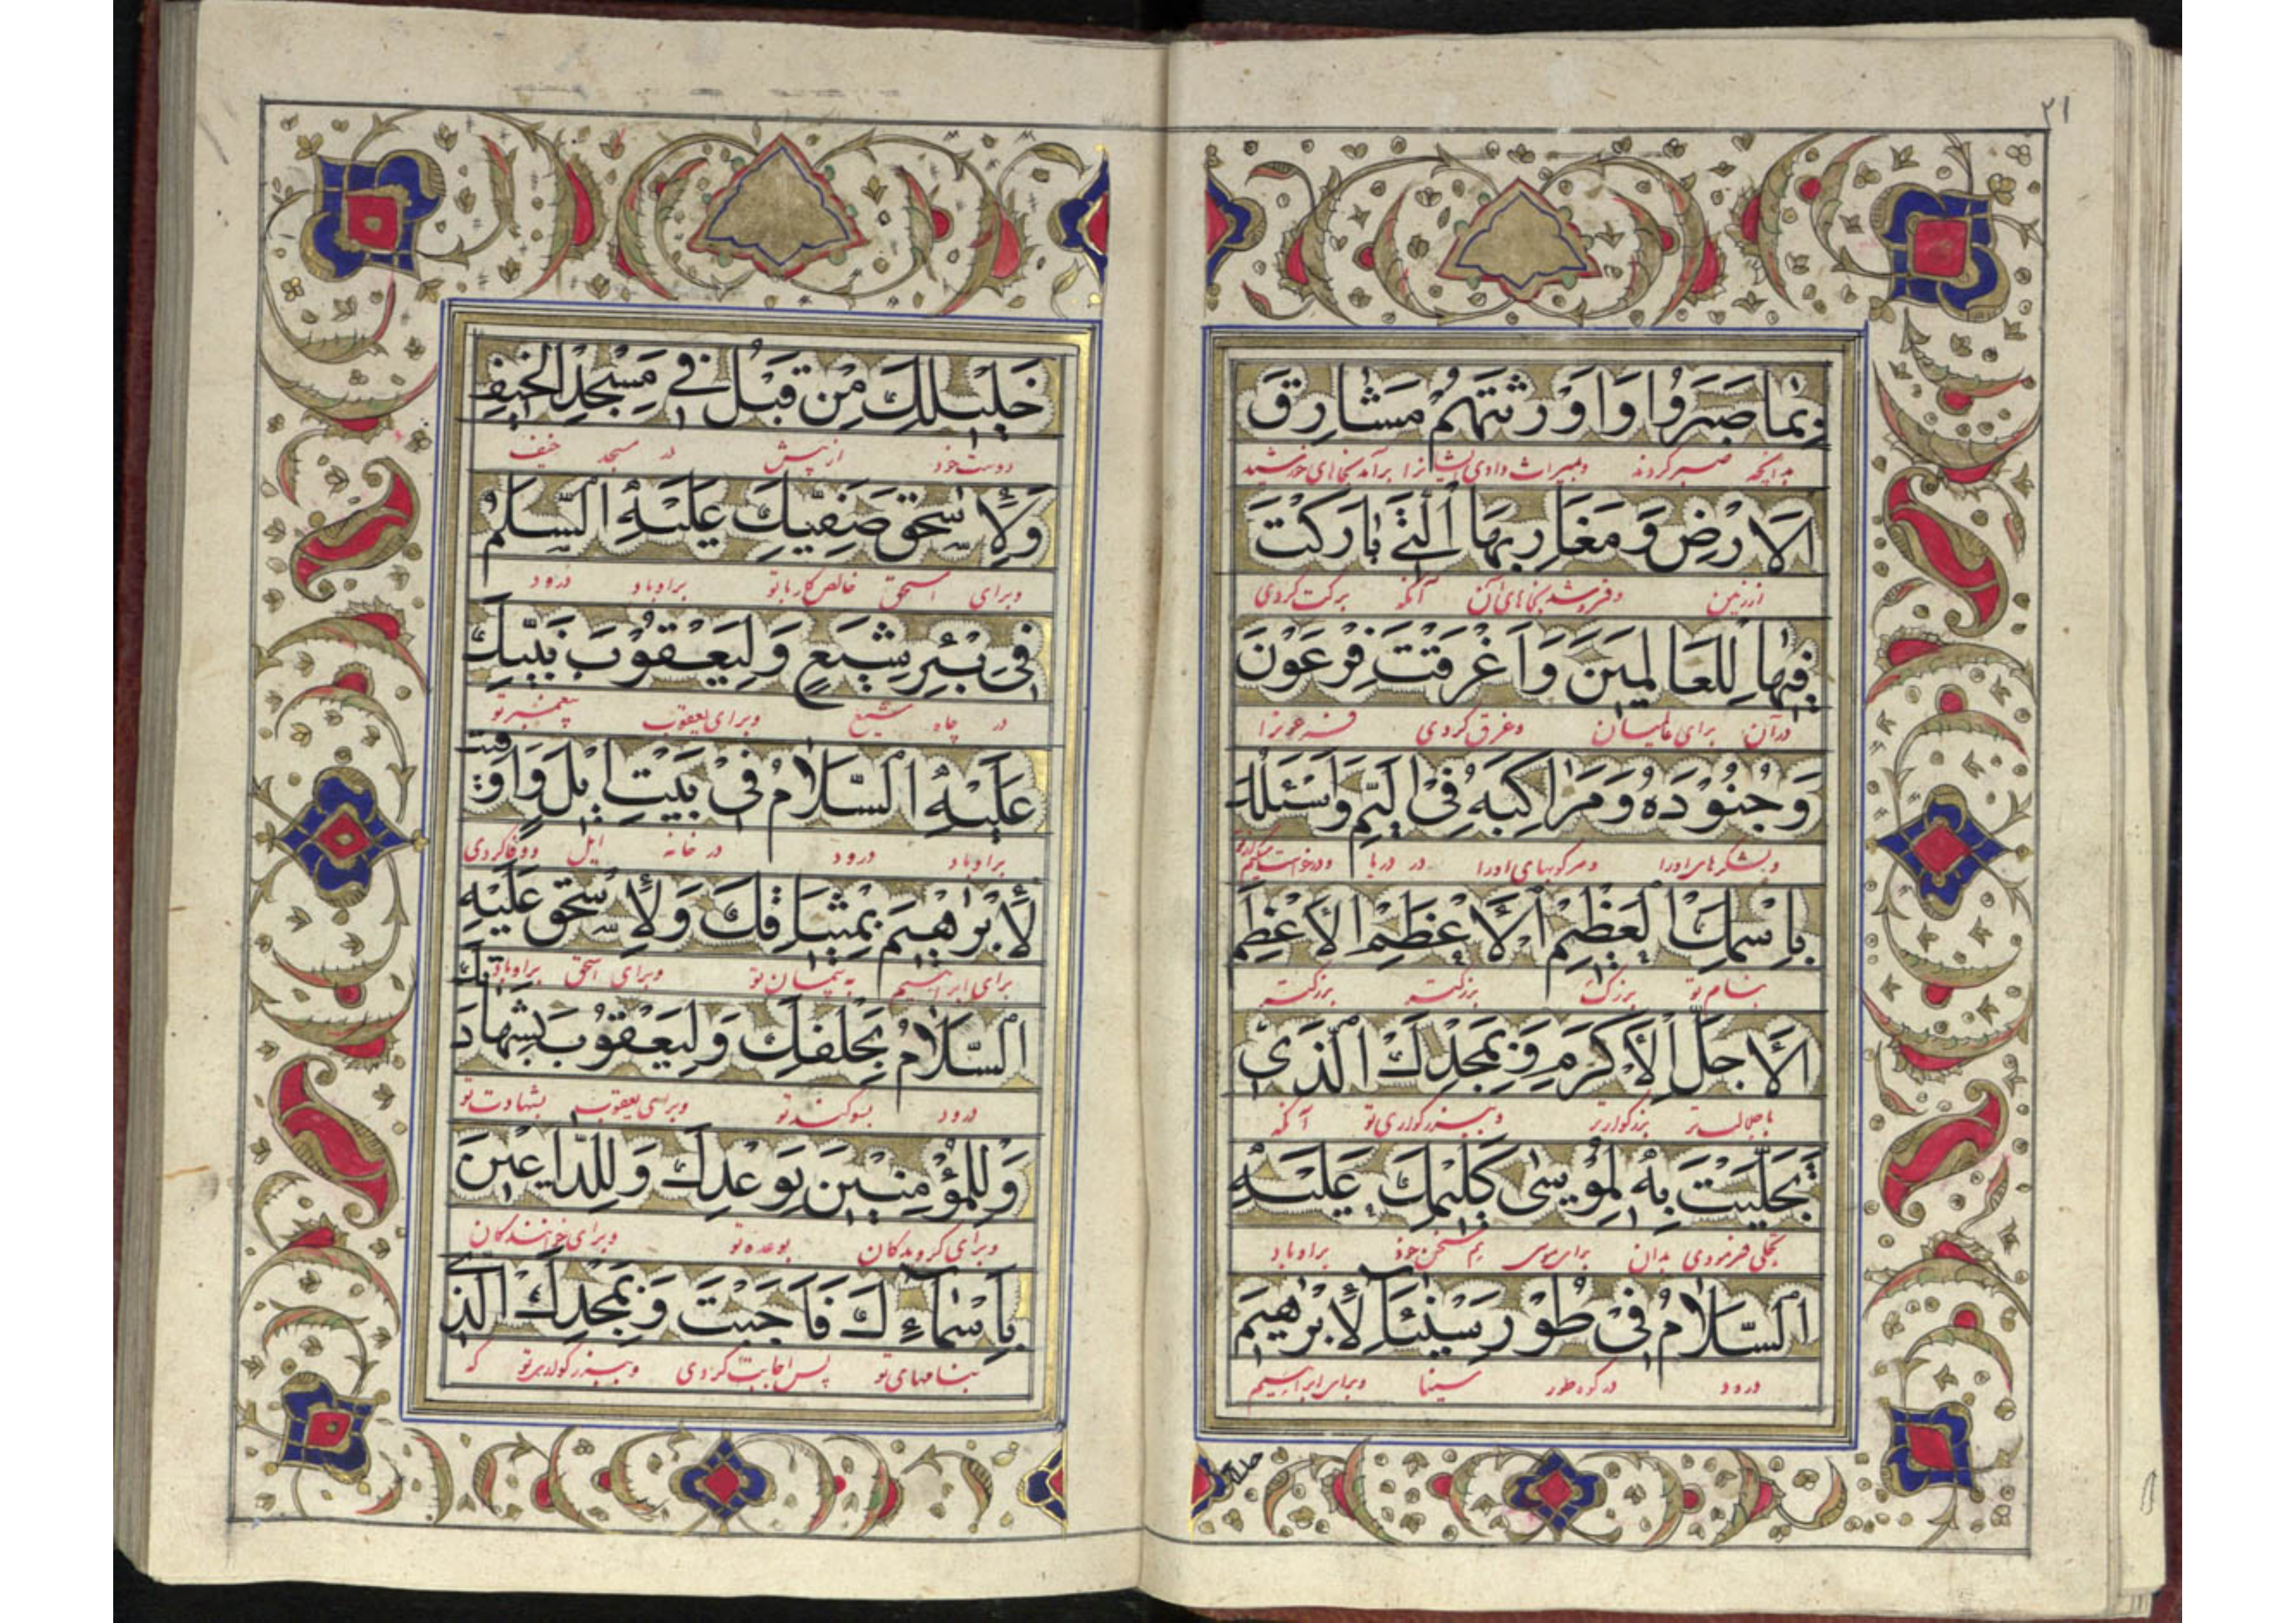 ٢١
بِمَا صَبَرُوا وَاَوْرَثْتَهُمْ مَشَارِقَ
بدانچه صبر کردند ومیراث دادی ایشانرا برآمدنجاهای خورشید
اَلْاَرْضِ وَ مَغَارِبِهَا اَلَّتِي بَارَكْتَ
اززمین وفروشدنجاهای آن آنکه برکت کردی
فِيهَا لِلْعَالَمِينَ وَ اَغْرَقْتَ فِرْعَوْنَ
درآن برای عالمیان وغرق کردی فرعونرا
وَ جُنُوْدَهُ وَ مَرَاكِبَهُ فِى الْيَمِّ وَاَسْئَلُكَ
ولشکرهای اورا ومرکوبهای اورا در دریا ودرخواست میکنم
بِاسْمِكَ الْعَظِيمِ الْاَعْظَمِ الْاَعْظَمِ
بنام تو بزرگ بزرگتر بزرگتر
الْاَجَلِّ الْاَكْرَمِ وَ بِمَجْدِكَ الَّذِي
باجلالتر بزرگوارتر وببزرگواری تو آنکه
تَجَلَّيْتَ بِهِ لِمُوْسٰى كَلِيْمِكَ عَلَيْهِ
تجلی فرمودی بدان برای موسی هم سخن خود براوباد
السَّلَامُ فِىْ طُوْرِ سَيْنَآءَ لِاِبْرٰهِيمَ
درود درکوه طور سینا وبرای ابراهیم
خَلِيْلِكَ مِنْ قَبْلُ فِي مَسْجِدِ الْخَيْفِ
دوست خود ازپیش در مسجد خیف
وَلِاِسْحٰقَ صَفِيِّكَ عَلَيْهِ السَّلَمُ
وبرای اسحق خالص کارباتو براوباد درود
فِى بِئْرِ شِيَعٍ وَ لِيَعْقُوْبَ نَبِيِّكَ
در چاه شیع وبرای یعقوب پیغمبر تو
عَلَيْهِ السَّلَامُ فِىْ بَيْتِ اِيْلٍ وَاَوْفَيْتَ
براوباد درود در خانه ایل ووفاکردی
لِاِبْرٰهِيمَ بِمِيثَاقِكَ وَ لِاِسْحٰقَ عَلَيْهِ
برای ابراهیم به پیمان تو وبرای اسحق براوباد
السَّلَامُ بِحَلْفِكَ وَ لِيَعْقُوْبَ بِشَهَادَتِكَ
درود بسوگند تو وبرای یعقوب بشهادت تو
وَ لِلْمُؤْمِنِيْنَ بِوَعْدِكَ وَ لِلدَّاعِيْنَ
وبرای گرویدگان بوعده تو وبرای خوانندگان
بِاَسْمَآءِكَ فَاَجَبْتَ وَ بِمَجْدِكَ الَّذِي
بنامهای تو پس اجابت کردی وببزرگواری تو که